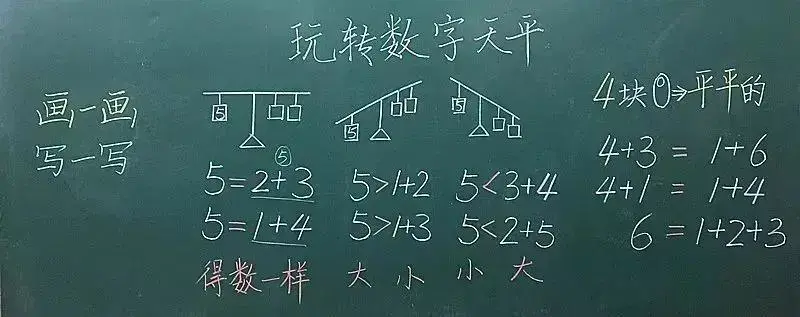 玩转数字天平
画一画
写一写
5
5
5
⑤
5=2+3
5=1+4
得数一样
5>1+2
5>1+3
大 小
5<3+4
5<2+5
小 大
4块①⇒平平的
4+3=1+6
4+1=1+4
6=1+2+3